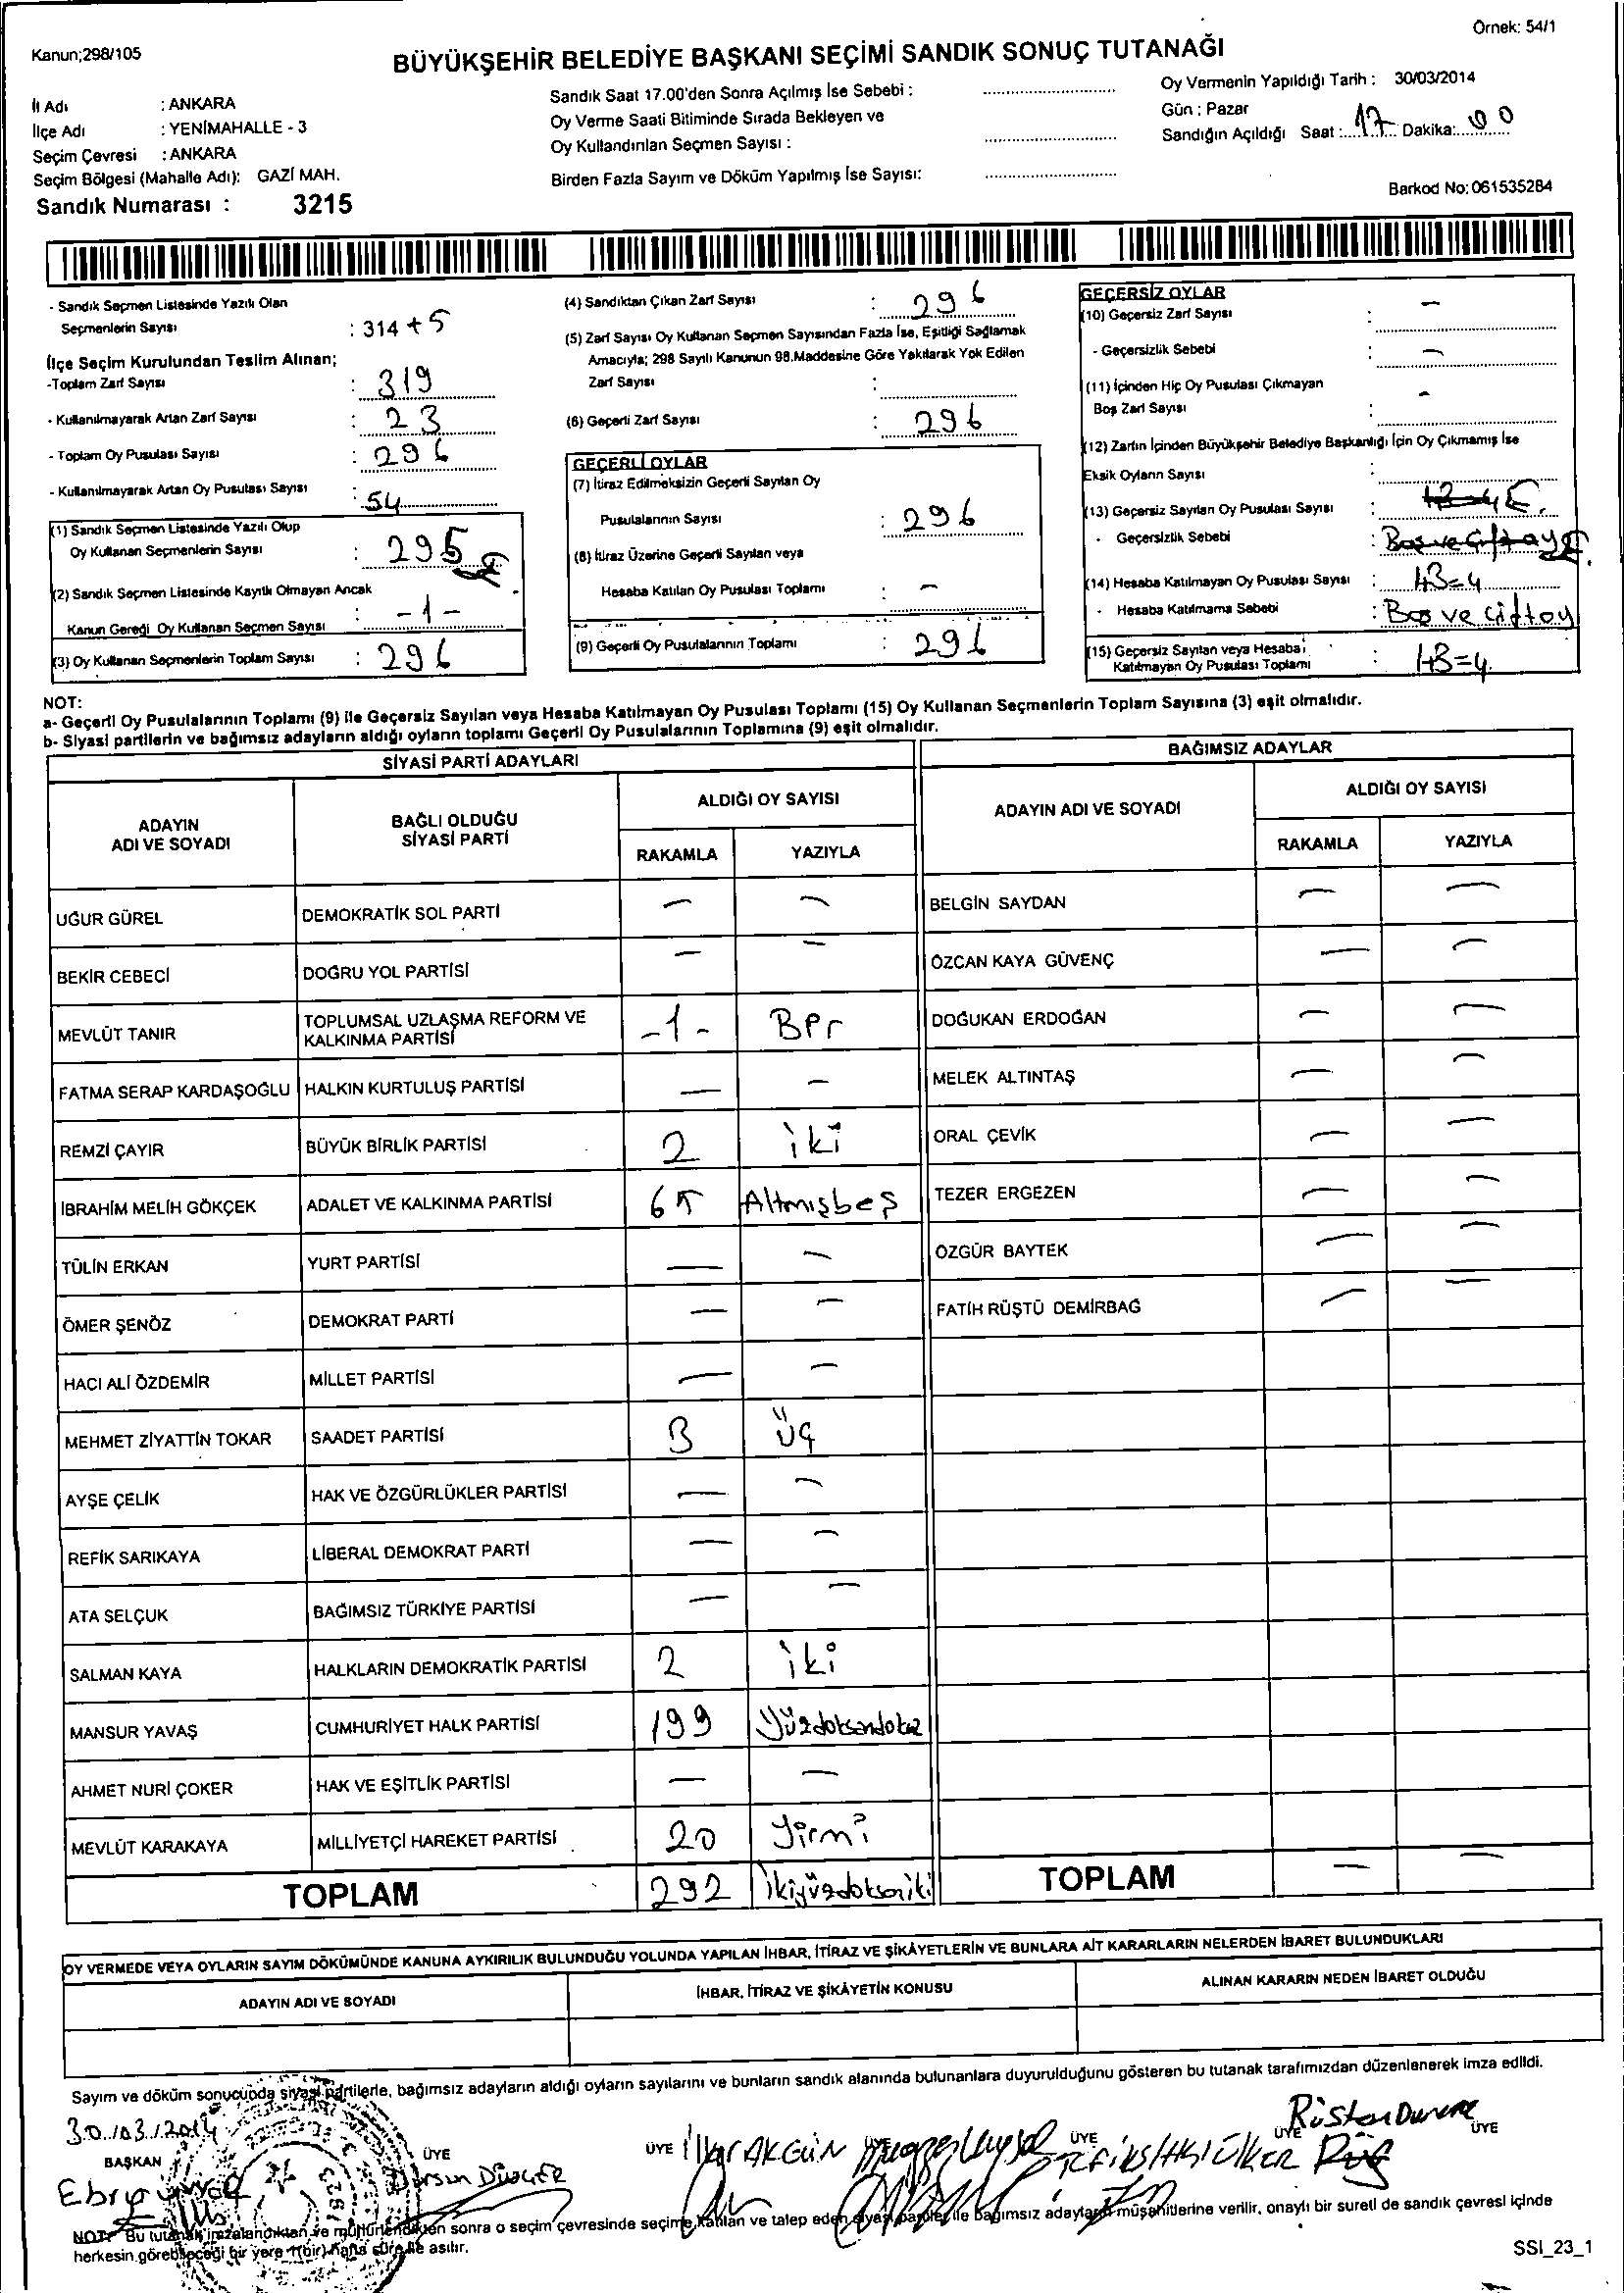 Örnek: 54/1
Kanun;298/105
BÜYÜKŞEHİR BELEDİYE BAŞKANI SEÇİMİ SANDIK SONUÇ TUTANAĞI
İl Adı : ANKARA
İlçe Adı : YENİMAHALLE - 3
Seçim Çevresi : ANKARA
Seçim Bölgesi (Mahalle Adı): GAZİ MAH.
Sandık Numarası : 3215
Sandık Saat 17.00'den Sonra Açılmış İse Sebebi :
Oy Verme Saati Bitiminde Sırada Bekleyen ve
Oy Kullandırılan Seçmen Sayısı :
Birden Fazla Sayım ve Döküm Yapılmış İse Sayısı:
Oy Vermenin Yapıldığı Tarih : 30/03/2014
Gün : Pazar
Sandığın Açıldığı Saat : 17 Dakika: 00
Barkod No: 061535284
- Sandık Seçmen Listesinde Yazılı Olan
Seçmenlerin Sayısı : 314 + 5
İlçe Seçim Kurulundan Teslim Alınan;
-Toplam Zarf Sayısı : 319
- Kullanılmayarak Artan Zarf Sayısı : 23
- Toplam Oy Pusulası Sayısı : 296
- Kullanılmayarak Artan Oy Pusulası Sayısı : 54
(1) Sandık Seçmen Listesinde Yazılı Olup
Oy Kullanan Seçmenlerin Sayısı : 295
(2) Sandık Seçmen Listesinde Kayıtlı Olmayan Ancak
Kanun Gereği Oy Kullanan Seçmen Sayısı : -1-
(3) Oy Kullanan Seçmenlerin Toplam Sayısı : 296
(4) Sandıktan Çıkan Zarf Sayısı : 296
(5) Zarf Sayısı Oy Kullanan Seçmen Sayısından Fazla İse, Eşitliği Sağlamak
Amacıyla; 298 Sayılı Kanunun 98.Maddesine Göre Yakılarak Yok Edilen
Zarf Sayısı :
(6) Geçerli Zarf Sayısı : 296
GEÇERLİ OYLAR
(7) İtiraz Edilmeksizin Geçerli Sayılan Oy
Pusulalarının Sayısı : 296
(8) İtiraz Üzerine Geçerli Sayılan veya
Hesaba Katılan Oy Pusulası Toplamı : -
(9) Geçerli Oy Pusulalarının Toplamı : 296
GEÇERSİZ OYLAR
(10) Geçersiz Zarf Sayısı : -
- Geçersizlik Sebebi : -
(11) İçinden Hiç Oy Pusulası Çıkmayan
Boş Zarf Sayısı : -
(12) Zarfın İçinden Büyükşehir Belediye Başkanlığı İçin Oy Çıkmamış İse
Eksik Oyların Sayısı :
(13) Geçersiz Sayılan Oy Pusulası Sayısı :
- Geçersizlik Sebebi : Boş ve Çift ay
(14) Hesaba Katılmayan Oy Pusulası Sayısı : +3=4
- Hesaba Katılmama Sebebi : Boş ve çift oy
(15) Geçersiz Sayılan veya Hesaba
Katılmayan Oy Pusulası Toplamı : +3=4
NOT:
a- Geçerli Oy Pusulalarının Toplamı (9) ile Geçersiz Sayılan veya Hesaba Katılmayan Oy Pusulası Toplamı (15) Oy Kullanan Seçmenlerin Toplam Sayısına (3) eşit olmalıdır.
b- Siyasi partilerin ve bağımsız adayların aldığı oyların toplamı Geçerli Oy Pusulalarının Toplamına (9) eşit olmalıdır.
SİYASİ PARTİ ADAYLARI
ADAYIN ADI VE SOYADI
BAĞLI OLDUĞU SİYASİ PARTİ
ALDIĞI OY SAYISI
RAKAMLA YAZIYLA
UĞUR GÜREL DEMOKRATİK SOL PARTİ - -
BEKİR CEBECİ DOĞRU YOL PARTİSİ - -
MEVLÜT TANIR TOPLUMSAL UZLAŞMA REFORM VE KALKINMA PARTİSİ -1- Bir
FATMA SERAP KARDAŞOĞLU HALKIN KURTULUŞ PARTİSİ - -
REMZİ ÇAYIR BÜYÜK BİRLİK PARTİSİ 2 iki
İBRAHİM MELİH GÖKÇEK ADALET VE KALKINMA PARTİSİ 65 Altmışbeş
TÜLİN ERKAN YURT PARTİSİ - -
ÖMER ŞENÖZ DEMOKRAT PARTİ - -
HACI ALİ ÖZDEMİR MİLLET PARTİSİ - -
MEHMET ZİYATTİN TOKAR SAADET PARTİSİ 3 Üç
AYŞE ÇELİK HAK VE ÖZGÜRLÜKLER PARTİSİ - -
REFİK SARIKAYA LİBERAL DEMOKRAT PARTİ - -
ATA SELÇUK BAĞIMSIZ TÜRKİYE PARTİSİ - -
SALMAN KAYA HALKLARIN DEMOKRATİK PARTİSİ 2 iki
MANSUR YAVAŞ CUMHURİYET HALK PARTİSİ 199 Yüzdoksandokuz
AHMET NURİ ÇOKER HAK VE EŞİTLİK PARTİSİ - -
MEVLÜT KARAKAYA MİLLİYETÇİ HAREKET PARTİSİ 20 Yirmi
TOPLAM 292 ikiyüzdoksaniki
BAĞIMSIZ ADAYLAR
ADAYIN ADI VE SOYADI
ALDIĞI OY SAYISI
RAKAMLA YAZIYLA
BELGİN SAYDAN - -
ÖZCAN KAYA GÜVENÇ - -
DOĞUKAN ERDOĞAN - -
MELEK ALTINTAŞ - -
ORAL ÇEVİK - -
TEZER ERGEZEN - -
ÖZGÜR BAYTEK - -
FATİH RÜŞTÜ DEMİRBAĞ - -
TOPLAM - -
OY VERMEDE VEYA OYLARIN SAYIM DÖKÜMÜNDE KANUNA AYKIRILIK BULUNDUĞU YOLUNDA YAPILAN İHBAR, İTİRAZ VE ŞİKÂYETLERİN VE BUNLARA AİT KARARLARIN NELERDEN İBARET BULUNDUKLARI
ADAYIN ADI VE SOYADI
İHBAR, İTİRAZ VE ŞİKÂYETİN KONUSU
ALINAN KARARIN NEDEN İBARET OLDUĞU
Sayım ve döküm sonucunda siyasi partilerle, bağımsız adayların aldığı oyların sayılarını ve bunların sandık alanında bulunanlara duyurulduğunu gösteren bu tutanak tarafımızdan düzenlenerek imza edildi.
30/03/2014
BAŞKAN ÜYE ÜYE ÜYE ÜYE ÜYE
Ebru Dursun DİNÇER İlker AKGÜN ÜLKER
NOT: Bu tutanak imzalandıktan ve mühürlendikten sonra o seçim çevresinde seçime katılan ve talep eden siyasi partiler ile bağımsız adayların müşahitlerine verilir, onaylı bir sureti de sandık çevresi içinde
herkesin görebileceği bir yere 1(bir) hafta süre ile asılır.
SSI_23_1